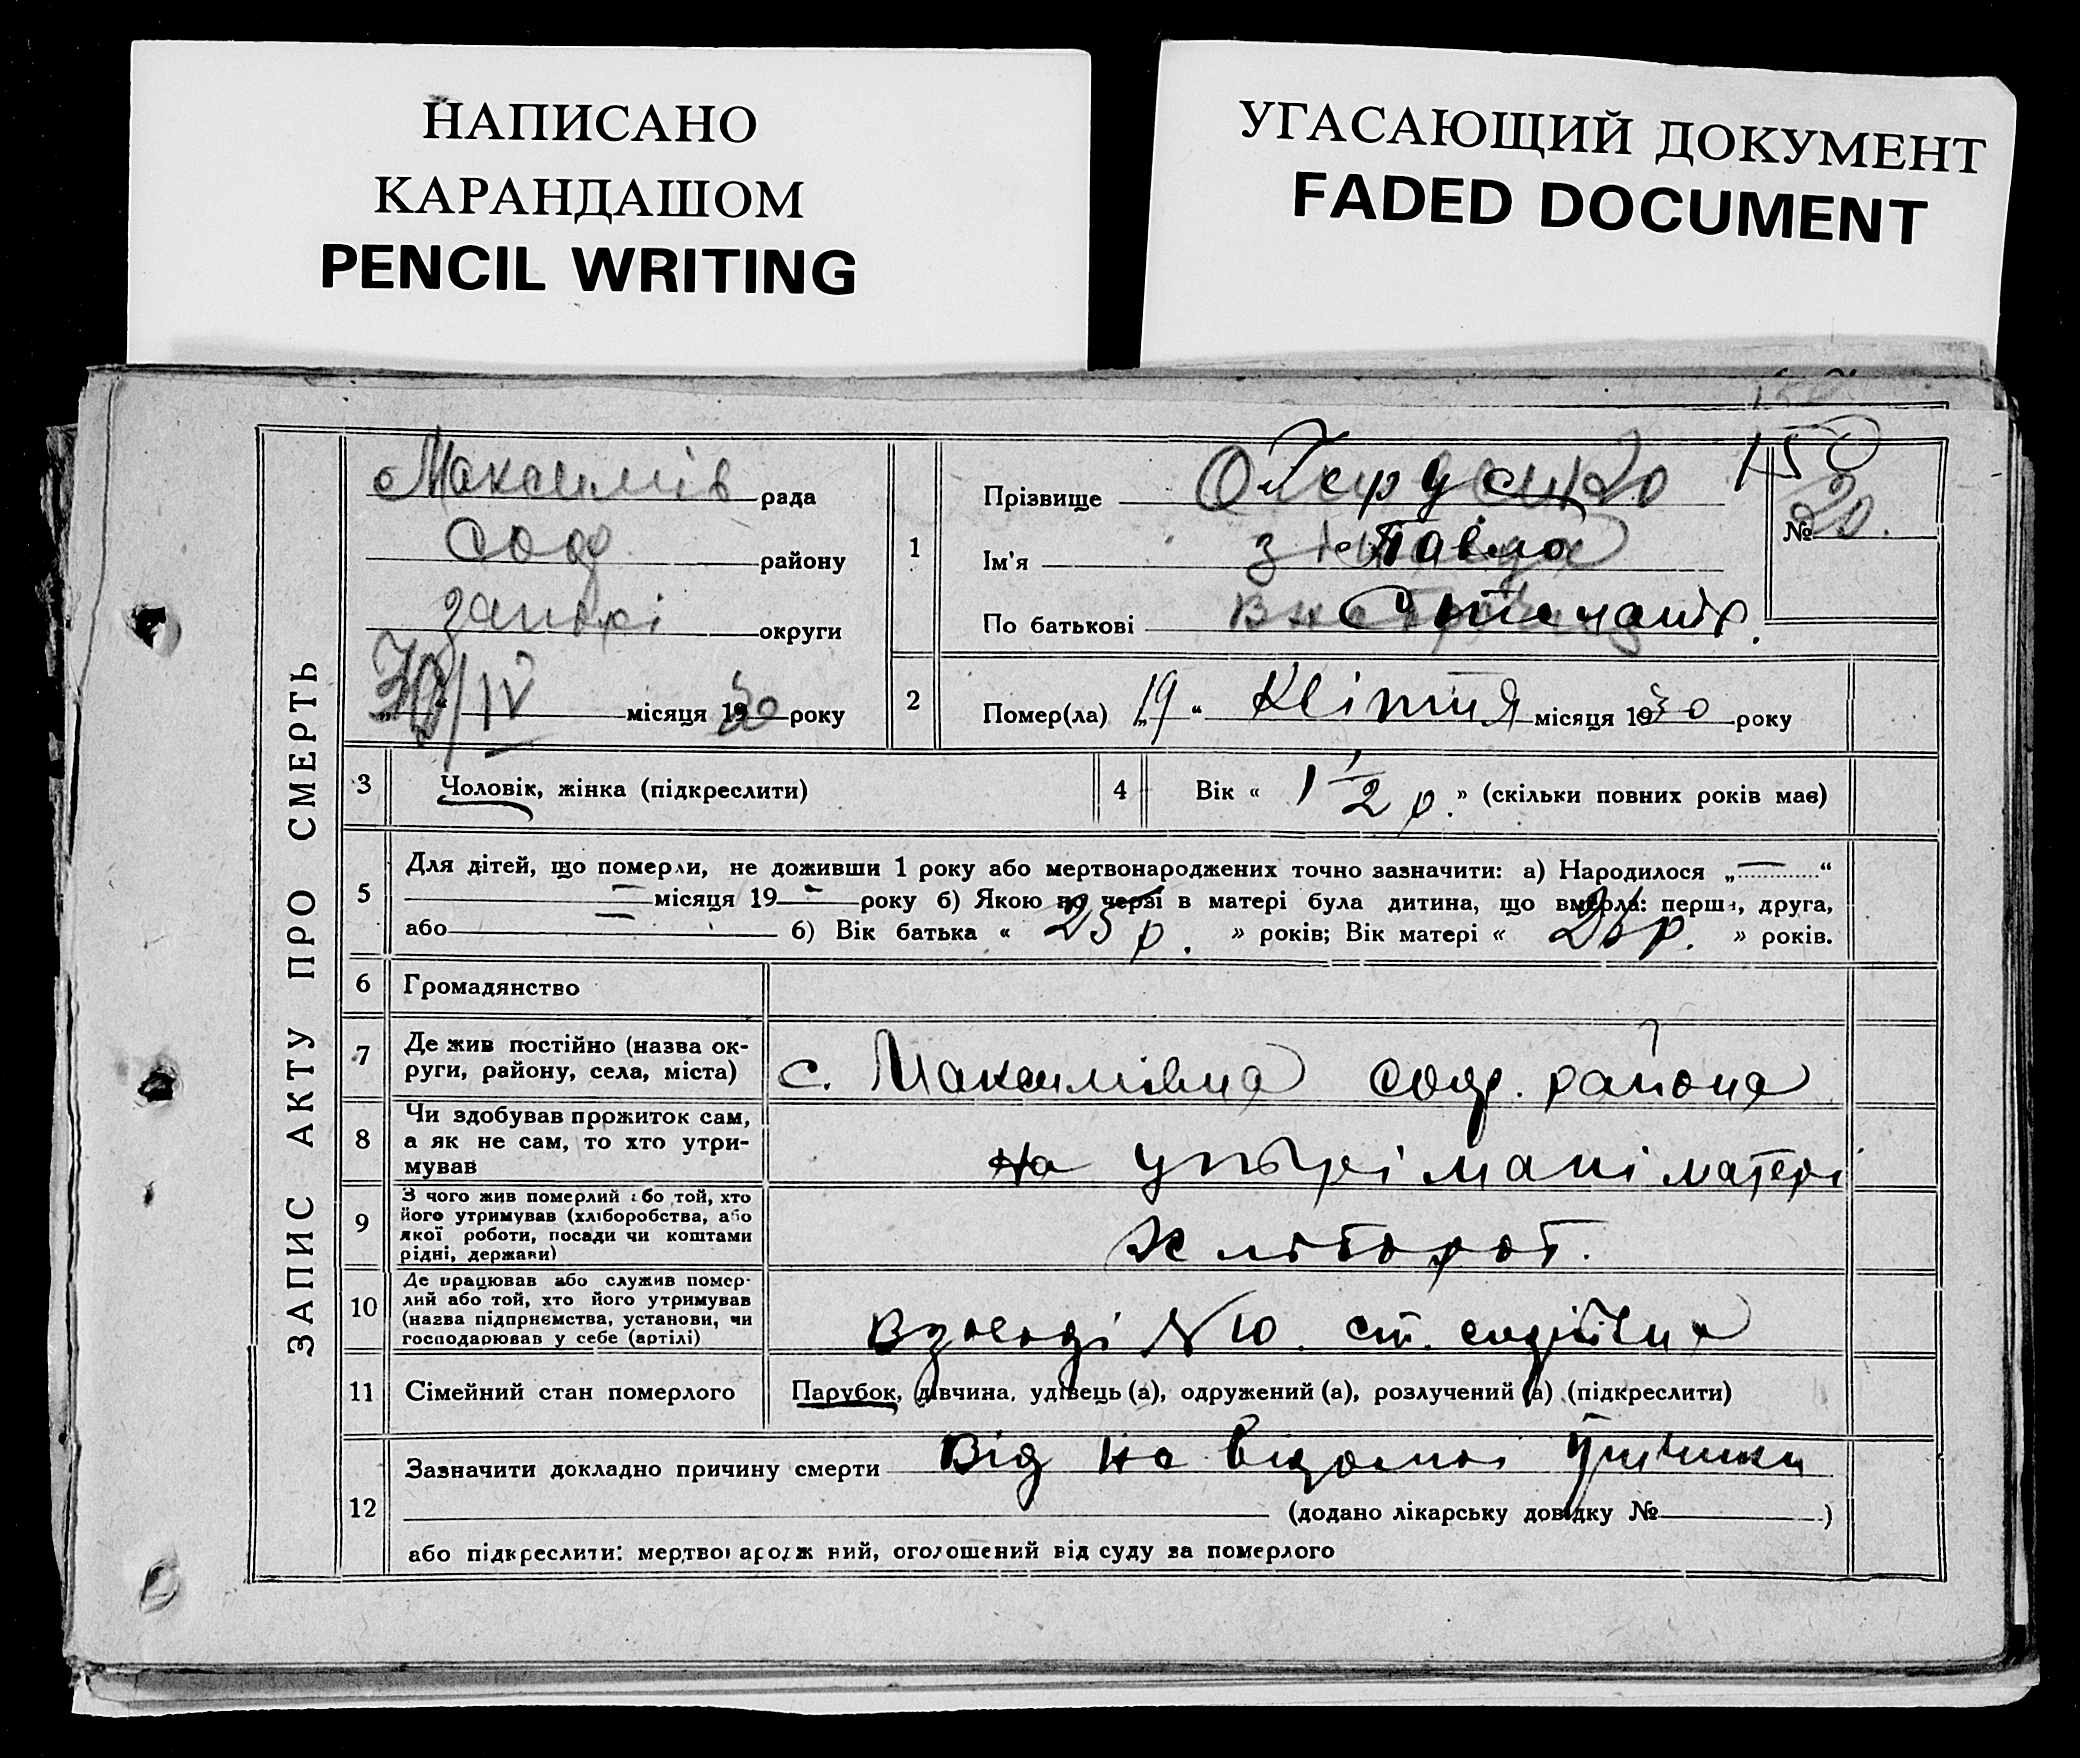 НАПИСАНО
КАРАНДАШОМ
PENCIL WRITING
УГАСАЮЩИЙ ДОКУМЕНТ
FADED DOCUMENT
ЗАПИС АКТУ ПРО СМЕРТЬ
Максимів рада
Соф району
округи
30/IV місяця 1930 року
150
№ 20.
1
Прізвище
Ім'я Павло
По батькові
2
Помер(ла) „19 “ Квітня місяця 1930 року
3
Чоловік, жінка (підкреслити)
4
Вік « 1 1/2 р. » (скільки повних років має)
5
Для дітей, що померли, не доживши 1 року або мертвонароджених точно зазначити: а) Народилося „ — “
— місяця 19 — року б) Якою по черзі в матері була дитина, що вмерла: перша, друга,
або — б) Вік батька « 25 р. » років; Вік матері « р. » років.
6
Громадянство
7
Де жив постійно (назва ок-
руги, району, села, міста)
с. Максимівна соф. района
8
Чи здобував прожиток сам,
а як не сам, то хто утри-
мував
На матері
9
З чого жив померлий або той, хто
його утримував (хліборобства, або
якої роботи, посади чи коштами
рідні, держави)
Хлібороб.
10
Де працював або служив помер-
лий або той, хто його утримував
(назва підприємства, установи, чи
господарював у себе (артілі)
11
Сімейний стан померлого
Парубок, дівчина, удівець (а), одружений (а), розлучений (а) (підкреслити)
12
Зазначити докладно причину смерти Від
(додано лікарську довідку № )
або підкреслити: мертвонароджений, оголошений від суду за померлого